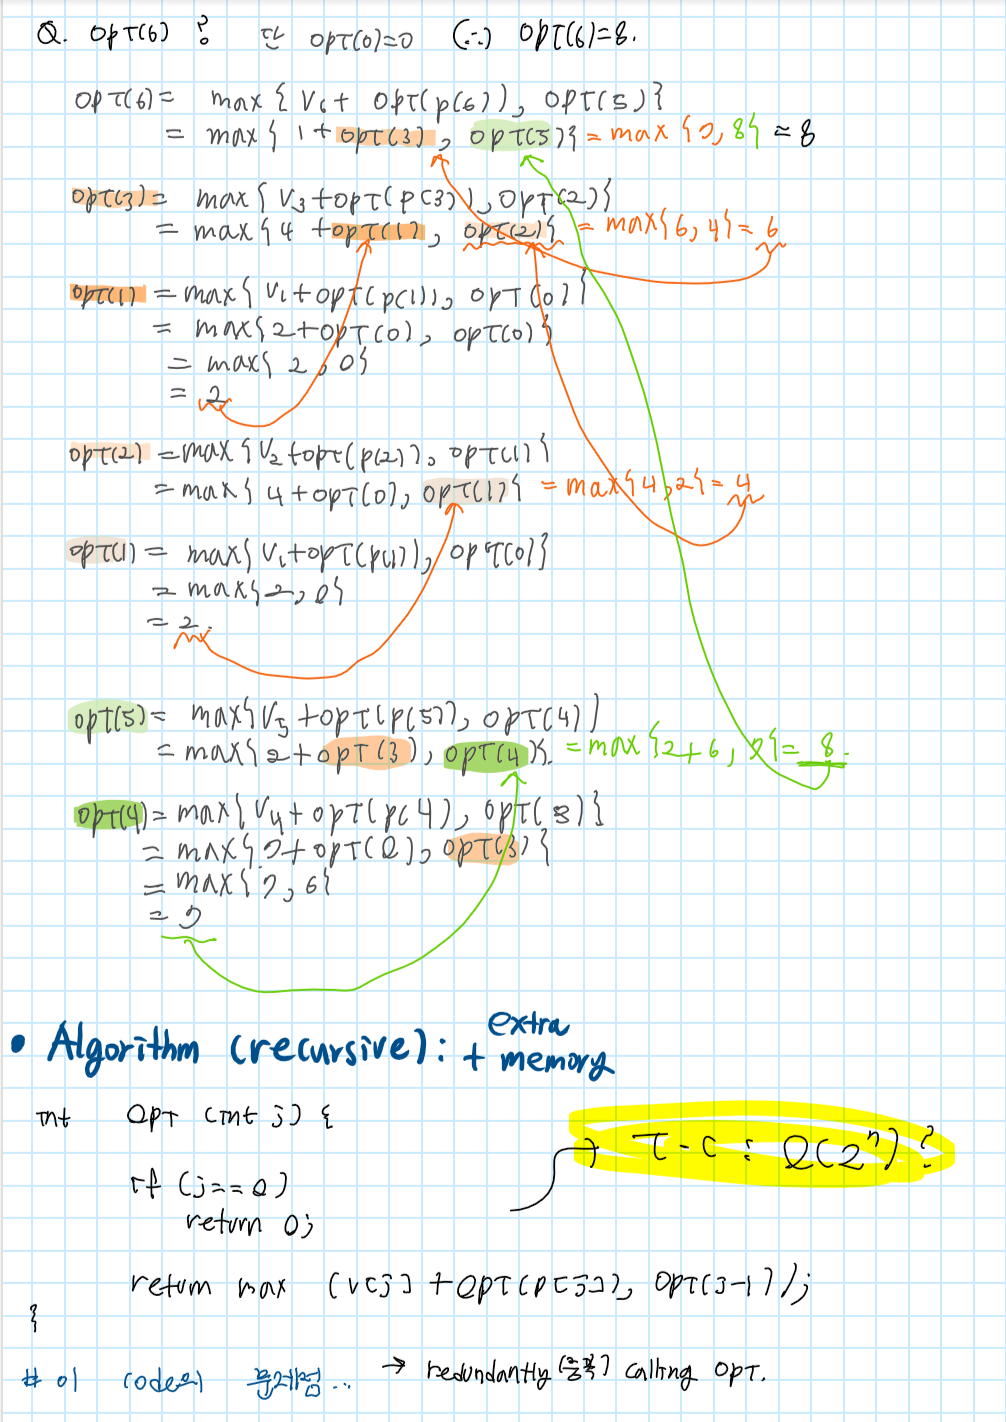 Q. OPT(6) ? 단 OPT(0)=0 (∴) OPT(6)=8.
OPT(6)= max { V6+ OPT(p(6)), OPT(5)}
= max{ 1+OPT(3), OPT(5)} = max {7, 8} = 8
OPT(3)= max{ V3+OPT(p(3)), OPT(2)}
= max{4 +OPT(1), OPT(2)} = max{6, 4} = 6
OPT(1) = max{ V1+OPT(p(1)), OPT(0)}
= max{2+OPT(0), OPT(0)}
= max{ 2, 0}
= 2
OPT(2) = max{V2+OPT(p(2)), OPT(1)}
= max{ 4+OPT(0), OPT(1)} = max{4, 2} = 4
OPT(1) = max{V1+OPT(p(1)), OPT(0)}
= max{2, 0}
= 2.
OPT(5)= max{V5 +OPT(p(5)), OPT(4)}
= max{2+OPT(3), OPT(4)}. = max{2+6, 7} = 8.
OPT(4)= max{V4+OPT(p(4), OPT(3)}
= max{7+OPT(0), OPT(3)}
= max{7, 6}
= 7
• Algorithm (recursive): + extra memory
int OPT (int j) {
if (j==0)
return 0;
→ T-C : O(2ⁿ) ?
return max (v[j] +OPT(p[j]), OPT(j-1));
}
# 이 code의 문제점.. → redundantly (중복) calling OPT.